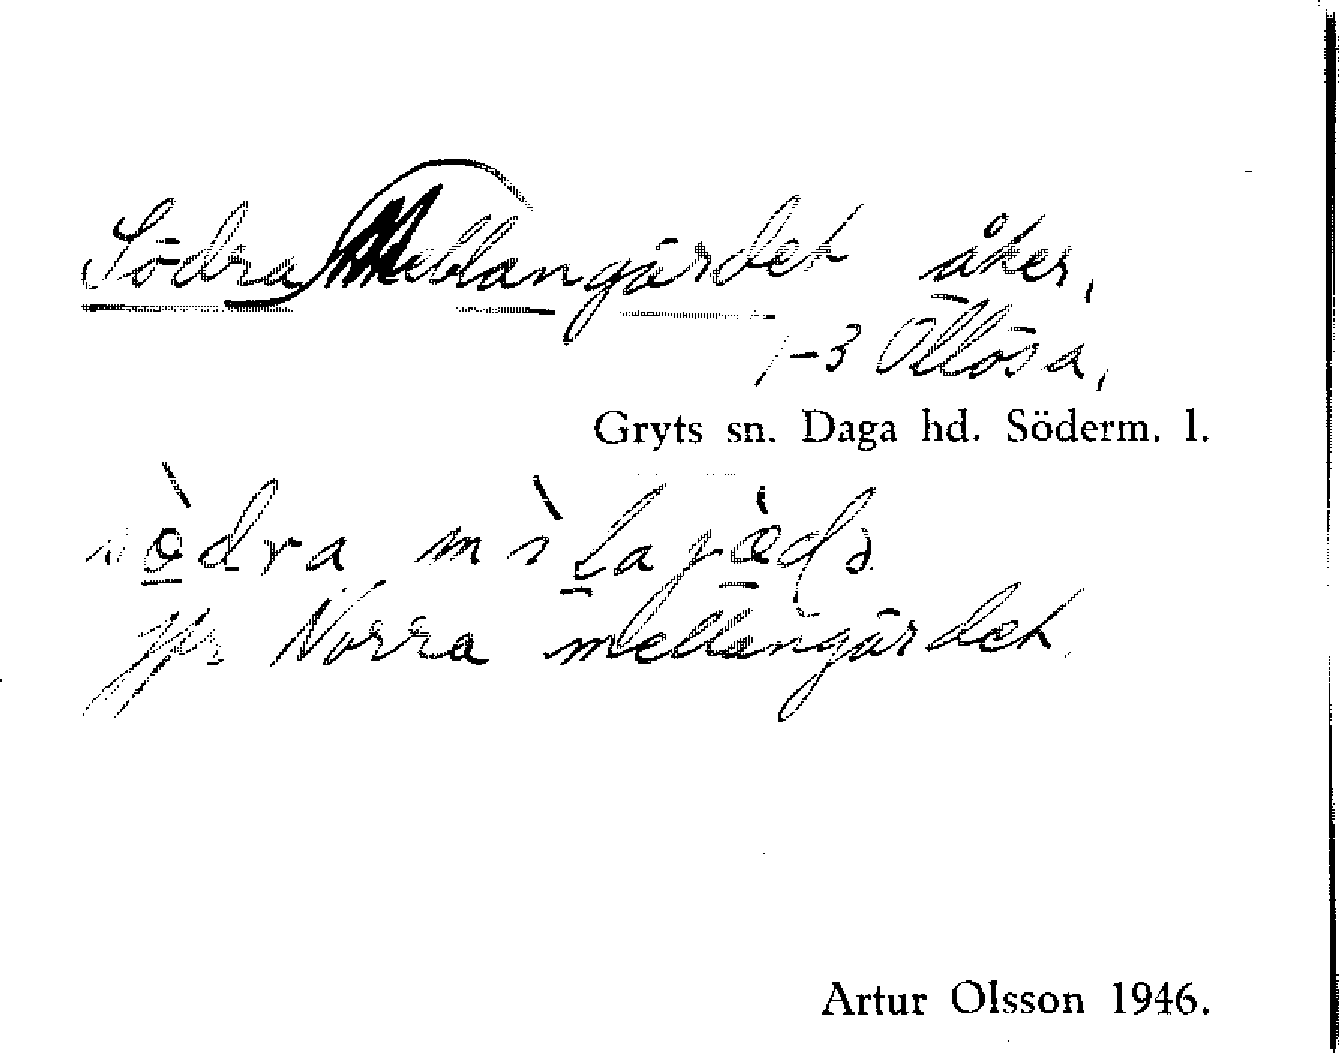 Södra Mellangärdet åker,
1-3 Ollösa,
Gryts sn. Daga hd. Söderm. l.
Jfr Norra mellangärdet.
Artur Olsson 1946.